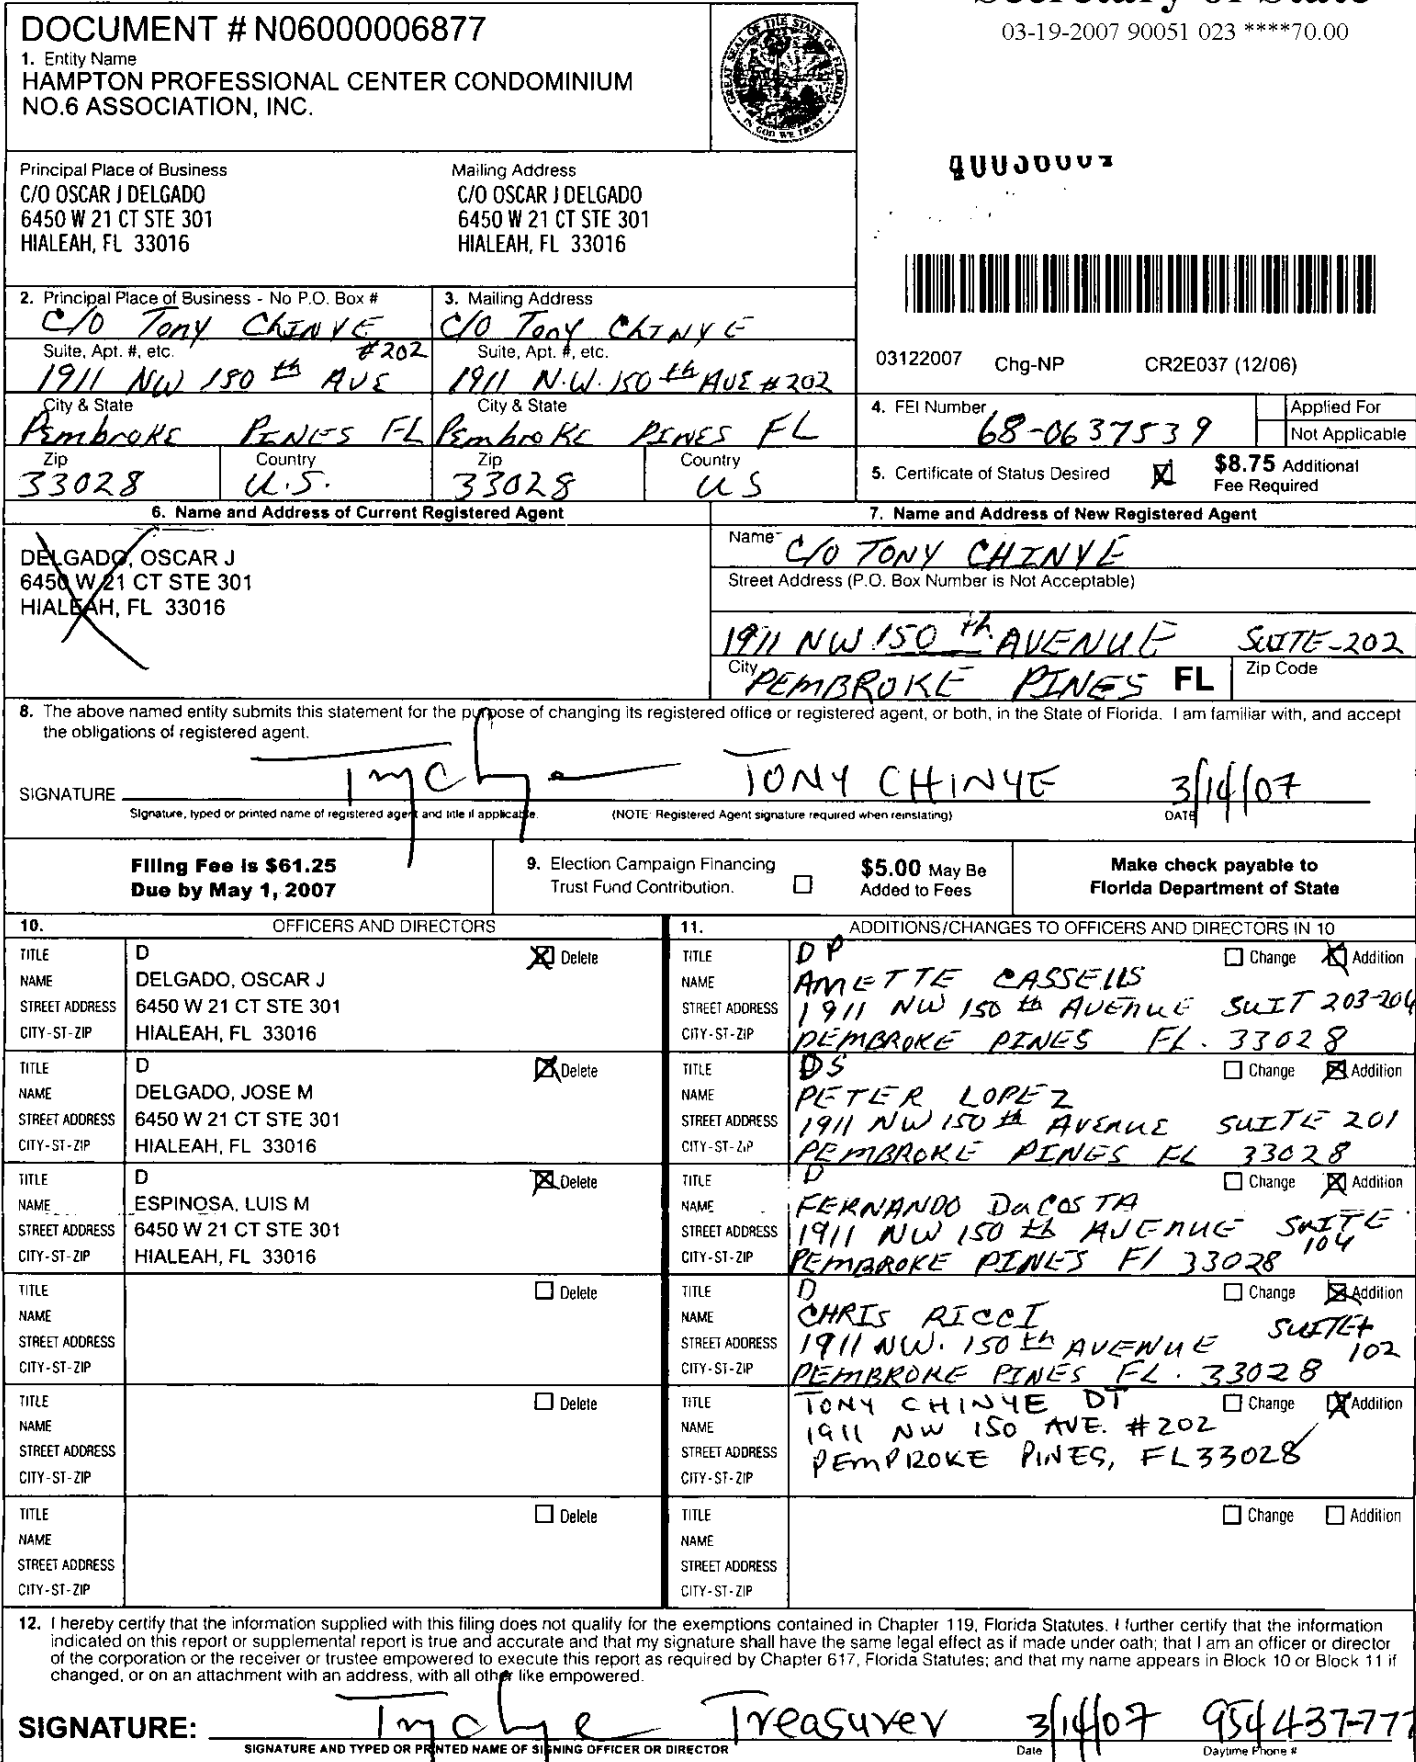 DOCUMENT # N06000006877
03-19-2007 90051 023 ****70.00
1. Entity Name
HAMPTON PROFESSIONAL CENTER CONDOMINIUM
NO.6 ASSOCIATION, INC.
GREAT SEAL OF THE STATE OF FLORIDA
IN GOD WE TRUST
Principal Place of Business
C/O OSCAR J DELGADO
6450 W 21 CT STE 301
HIALEAH, FL 33016
Mailing Address
C/O OSCAR J DELGADO
6450 W 21 CT STE 301
HIALEAH, FL 33016
2. Principal Place of Business - No P.O. Box #
C/O Tony CHINYE
Suite, Apt. #, etc.
#202
1911 NW 150 th AVE
City & State
Pembroke PINES FL
Zip
33028
Country
U.S.
3. Mailing Address
C/O Tony CHINYE
Suite, Apt. #, etc.
1911 N.W. 150 th AVE #202
City & State
Pembroke PINES FL
Zip
33028
Country
US
03122007 Chg-NP CR2E037 (12/06)
4. FEI Number
68-0637539
Applied For
Not Applicable
5. Certificate of Status Desired
$8.75 Additional
Fee Required
6. Name and Address of Current Registered Agent
DELGADO, OSCAR J
6450 W 21 CT STE 301
HIALEAH, FL 33016
7. Name and Address of New Registered Agent
Name
C/O TONY CHINYE
Street Address (P.O. Box Number is Not Acceptable)
1911 NW 150 th AVENUE SUITE-202
City
PEMBROKE PINES FL
Zip Code
8. The above named entity submits this statement for the purpose of changing its registered office or registered agent, or both, in the State of Florida. I am familiar with, and accept
the obligations of registered agent.
SIGNATURE TONY CHINYE 3/14/07
Signature, typed or printed name of registered agent and title if applicable. (NOTE: Registered Agent signature required when reinstating) DATE
Filing Fee is $61.25
Due by May 1, 2007
9. Election Campaign Financing
Trust Fund Contribution.
$5.00 May Be
Added to Fees
Make check payable to
Florida Department of State
10. OFFICERS AND DIRECTORS
TITLE D Delete
NAME DELGADO, OSCAR J
STREET ADDRESS 6450 W 21 CT STE 301
CITY-ST-ZIP HIALEAH, FL 33016
TITLE D Delete
NAME DELGADO, JOSE M
STREET ADDRESS 6450 W 21 CT STE 301
CITY-ST-ZIP HIALEAH, FL 33016
TITLE D Delete
NAME ESPINOSA, LUIS M
STREET ADDRESS 6450 W 21 CT STE 301
CITY-ST-ZIP HIALEAH, FL 33016
TITLE Delete
NAME
STREET ADDRESS
CITY-ST-ZIP
TITLE Delete
NAME
STREET ADDRESS
CITY-ST-ZIP
TITLE Delete
NAME
STREET ADDRESS
CITY-ST-ZIP
11. ADDITIONS/CHANGES TO OFFICERS AND DIRECTORS IN 10
TITLE DP Change Addition
NAME CASSELLS
STREET ADDRESS 1911 NW 150 th AVENUE SUIT 203-204
CITY-ST-ZIP PEMBROKE PINES FL. 33028
TITLE DS Change Addition
NAME PETER LOPEZ
STREET ADDRESS 1911 NW 150 th AVENUE SUITE 201
CITY-ST-ZIP PEMBROKE PINES FL 33028
TITLE D Change Addition
NAME FERNANDO DaCOSTA
STREET ADDRESS 1911 NW 150 th AVENUE SUITE
104
CITY-ST-ZIP PEMBROKE PINES Fl 33028
TITLE D Change Addition
NAME CHRIS RICCI
STREET ADDRESS 1911 NW. 150 th AVENUE
102
CITY-ST-ZIP PEMBROKE PINES FL. 33028
TITLE TONY CHINYE DT Change Addition
NAME 1911 NW 150 AVE. #202
STREET ADDRESS PEMPROKE PINES, FL 33028
CITY-ST-ZIP
TITLE Change Addition
NAME
STREET ADDRESS
CITY-ST-ZIP
12. I hereby certify that the information supplied with this filing does not qualify for the exemptions contained in Chapter 119, Florida Statutes. I further certify that the information
indicated on this report or supplemental report is true and accurate and that my signature shall have the same legal effect as if made under oath; that I am an officer or director
of the corporation or the receiver or trustee empowered to execute this report as required by Chapter 617, Florida Statutes; and that my name appears in Block 10 or Block 11 if
changed, or on an attachment with an address, with all other like empowered.
SIGNATURE: Treasurer 3/14/07 954 437-777
SIGNATURE AND TYPED OR PRINTED NAME OF SIGNING OFFICER OR DIRECTOR Date Daytime Phone #